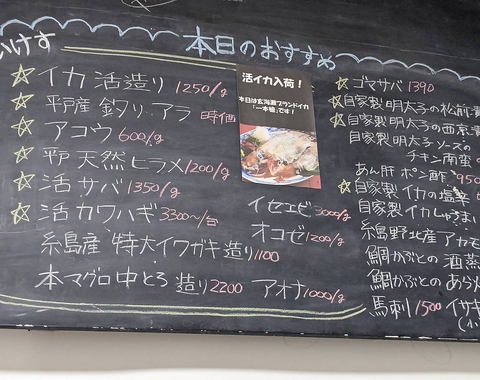 いけす
本日のおすすめ
☆イカ 活造り 1250/g
平戸産 釣り アラ 時価
☆アコウ 600/g
平戸 天然 ヒラメ 1200/g
☆活 サバ 1350/g
☆活 カワハギ 3300〜/台
糸島産 特大イワガキ 造り 1100
本マグロ中とろ 造り 2200
イセエビ 3000/g
オコゼ 1200/g
アオナ 1000/g
活イカ入荷!
本日は玄海灘ブランドイカ
「一本槍」です!
☆ゴマサバ 1390
☆自家製 明太子の松前漬
☆自家製 明太子の西京漬
自家製 明太子ソースの
チキン南蛮
あん肝 ポン酢 950
☆自家製 イカの塩辛
自家製 イカしゅうまい
糸島野北産 アカモ
鯛かぶとの 酒蒸
鯛かぶとの あら
馬刺 1500 イサキ